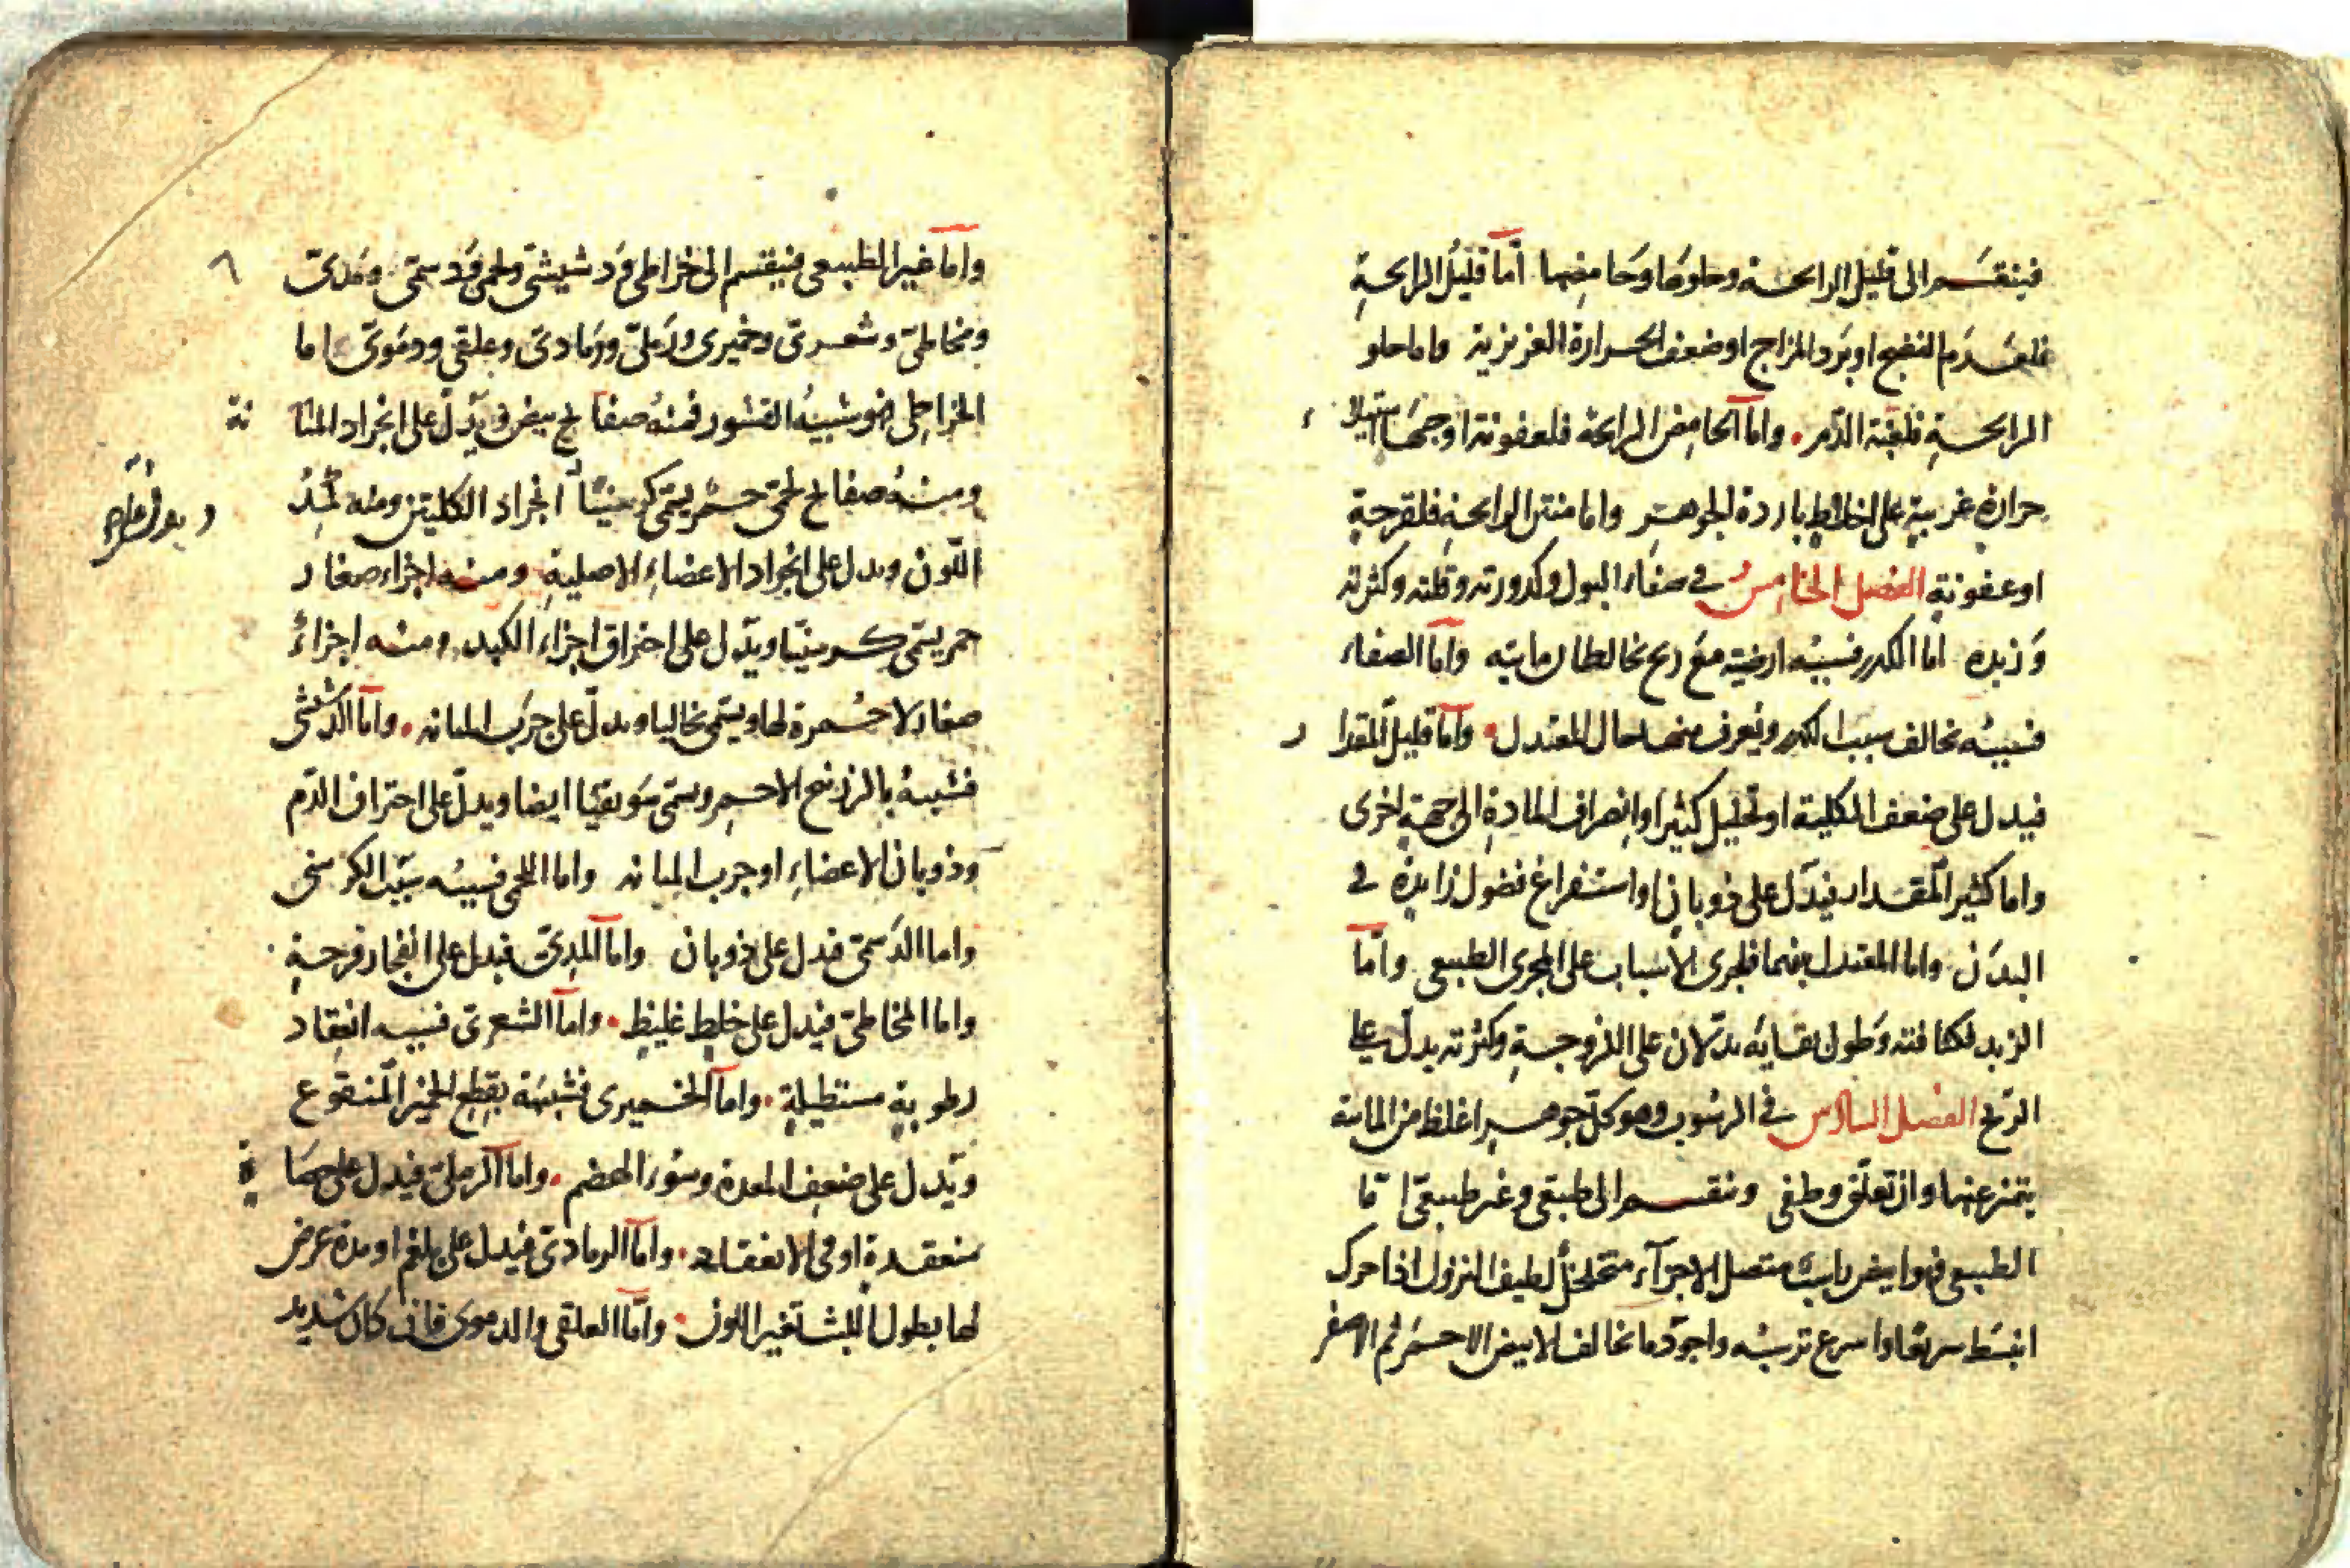 فينقسم الى قليل الرايحة وحلوها وحامضها اما قليل الرايحةِ
فلعدم النضج او بَرد المزاج او ضعف الحرارة الغريزية واما حلو
الرايحةِ فلغلبة الدّم. واماّ الحامض الرايحة فلعفونة اوجبها استيلاء
حرارةٍ غريبةٍ على اخلاطٍ باردة الجوهرِ واما منتن الرايحة فلقرحةٍ
او عفونةٍ الفصل الخامس في صفاء البول وكدورته وقلته وكثرته
وَزبده اما الكدر فسببُه ارضية مَع ريح تخالطا ن مائيته واماّ الصفاء
فسببُه تخالف سبب الكدر ويُعرف منهما حال المعتدل. واماّ قليل المقدار
فيدل على ضعف الكلية او تحليل كثير او انصراف المادةِ الى جهةٍ اخرى
واما كثير المقدار فيدّل على ذوبانٍ او استفراغ فضول زايدة في
البدَن واما المعتدل بينهما فلجرى الاسباب على المجرى الطبيعى واماّ
الزبد فكثافته وَطول بقايَه يدّلان على اللزوجةِ وكثرته يدل على
الريح الفصل السادس في الرسُوب وهو كلّ جوهرٍ اغلظ من المائية
يتميز عنها وان تعلّق وطفى وينقسم الى طبيعى وغير طبيعىّ اماّ
الطبيعى فهو ابيض راسبٌ متصل الاجزآء متخلخلٌ لطيف النزول اذا حرك
انبسَط سريعًا واسرع ترسبُه واجوَد ما تخالف الابيض الاحمَر ثم الاصفر
واماّ غير الطبيعى فينقسم الى خراطى وَدشيشىّ ولحمى وَدسمىّ ومَدىّ
ومخاطىّ وشعرىّ وخميرى ورَملىّ ورَمادىّ وعلقى ودمَوىّ اما
الخراطى فهو شبيهُ القشور فمنهُ صفايح بيض ويدّل على انجراد المثانة
ومنهُ صفايح لحمىّ حمر يسمّى كرسنيًّا انجراد الكليتين ومنه كمدُ
اللّون ويدل على انجراد الاعضاءِ الاصليةِ ومنه اجزاء صغار
حمر يسمّى كرسنيّا ويدّل على احتراق اجزاء الكبد ومنه اجزاءٌ
صغار لا حُمرة لها ويسمّى نخاليا ويدلّ على جرَب المثانه. واماّ الدشيشى
فشبيهٌ بالزرنيخ الاحمرِ ويسمّى سَويقيّا ايضا ويدلّ على احتراق الدّم
وذوبان الاعضاءِ او جرب المثانه واما اللحمى فسببُه سبَب الكرسنى
واما الدَسمّى فيدل على ذوبان واماّ المِدىّ فيدل على انفجار قرحةٍ
واما المخاطىّ فيدل على خلطٍ غليظٍ. واماّ الشعرىّ فسببه انعقاد
رطوبةٍ مستطيلةٍ. واماّ الخميرى فشبيَهٌ بقطع الخمير المنقوع
ويّدل على ضعفِ المعدة وسُوء الهضم. واماّ الرملىّ فيدل على حصَاة
منعقدةٍ او فى الانعقاد. واماّ الرمادىّ فيدل على بلغم او مدة عرض
لها بطول اللبث تغير اللون. واماّ العلقى والدموى فان كان شديد